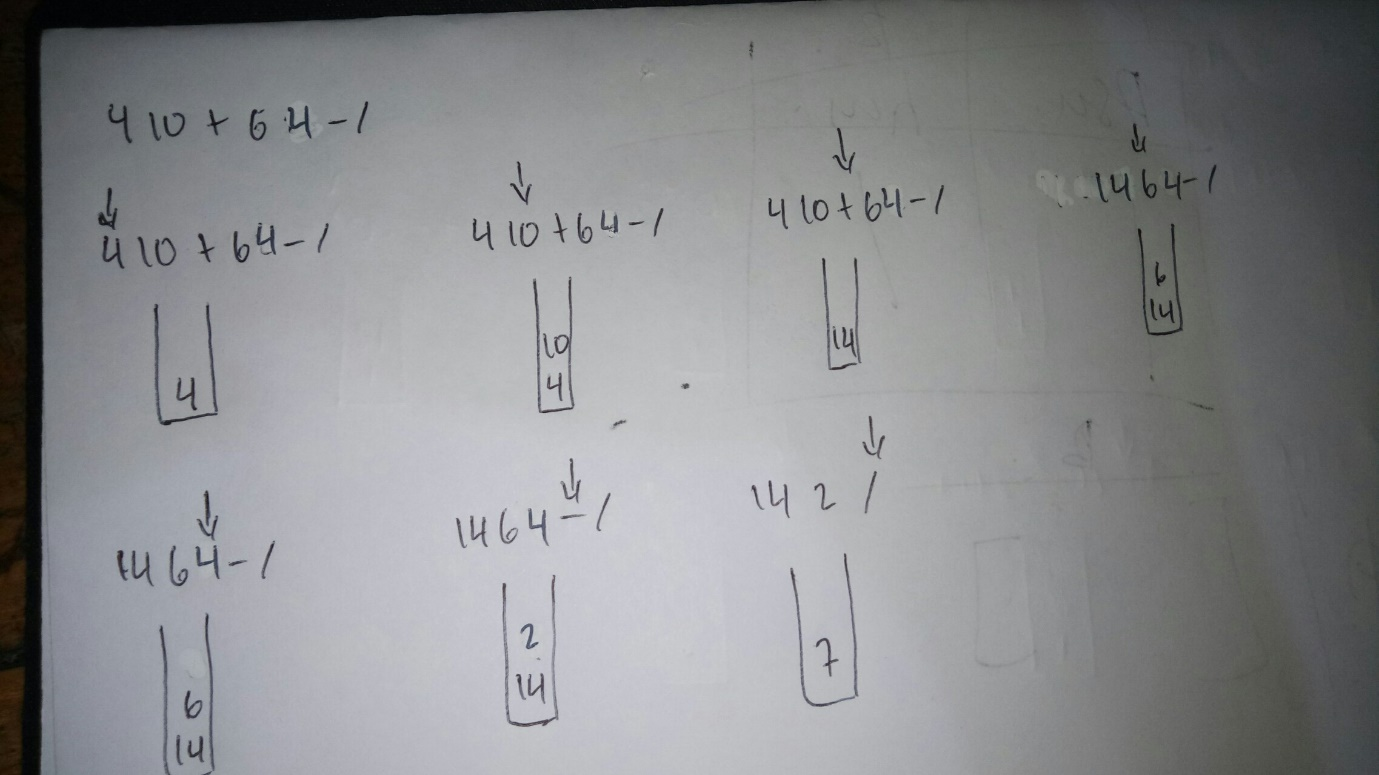 4 10 + 6 4 - /
4 10 + 6 4 - /
4
4 10 + 6 4 - /
10
4
4 10 + 6 4 - /
14
14 6 4 - /
6
14
14 6 4 - /
6
14
14 6 4 - /
2
14
14 2 /
7